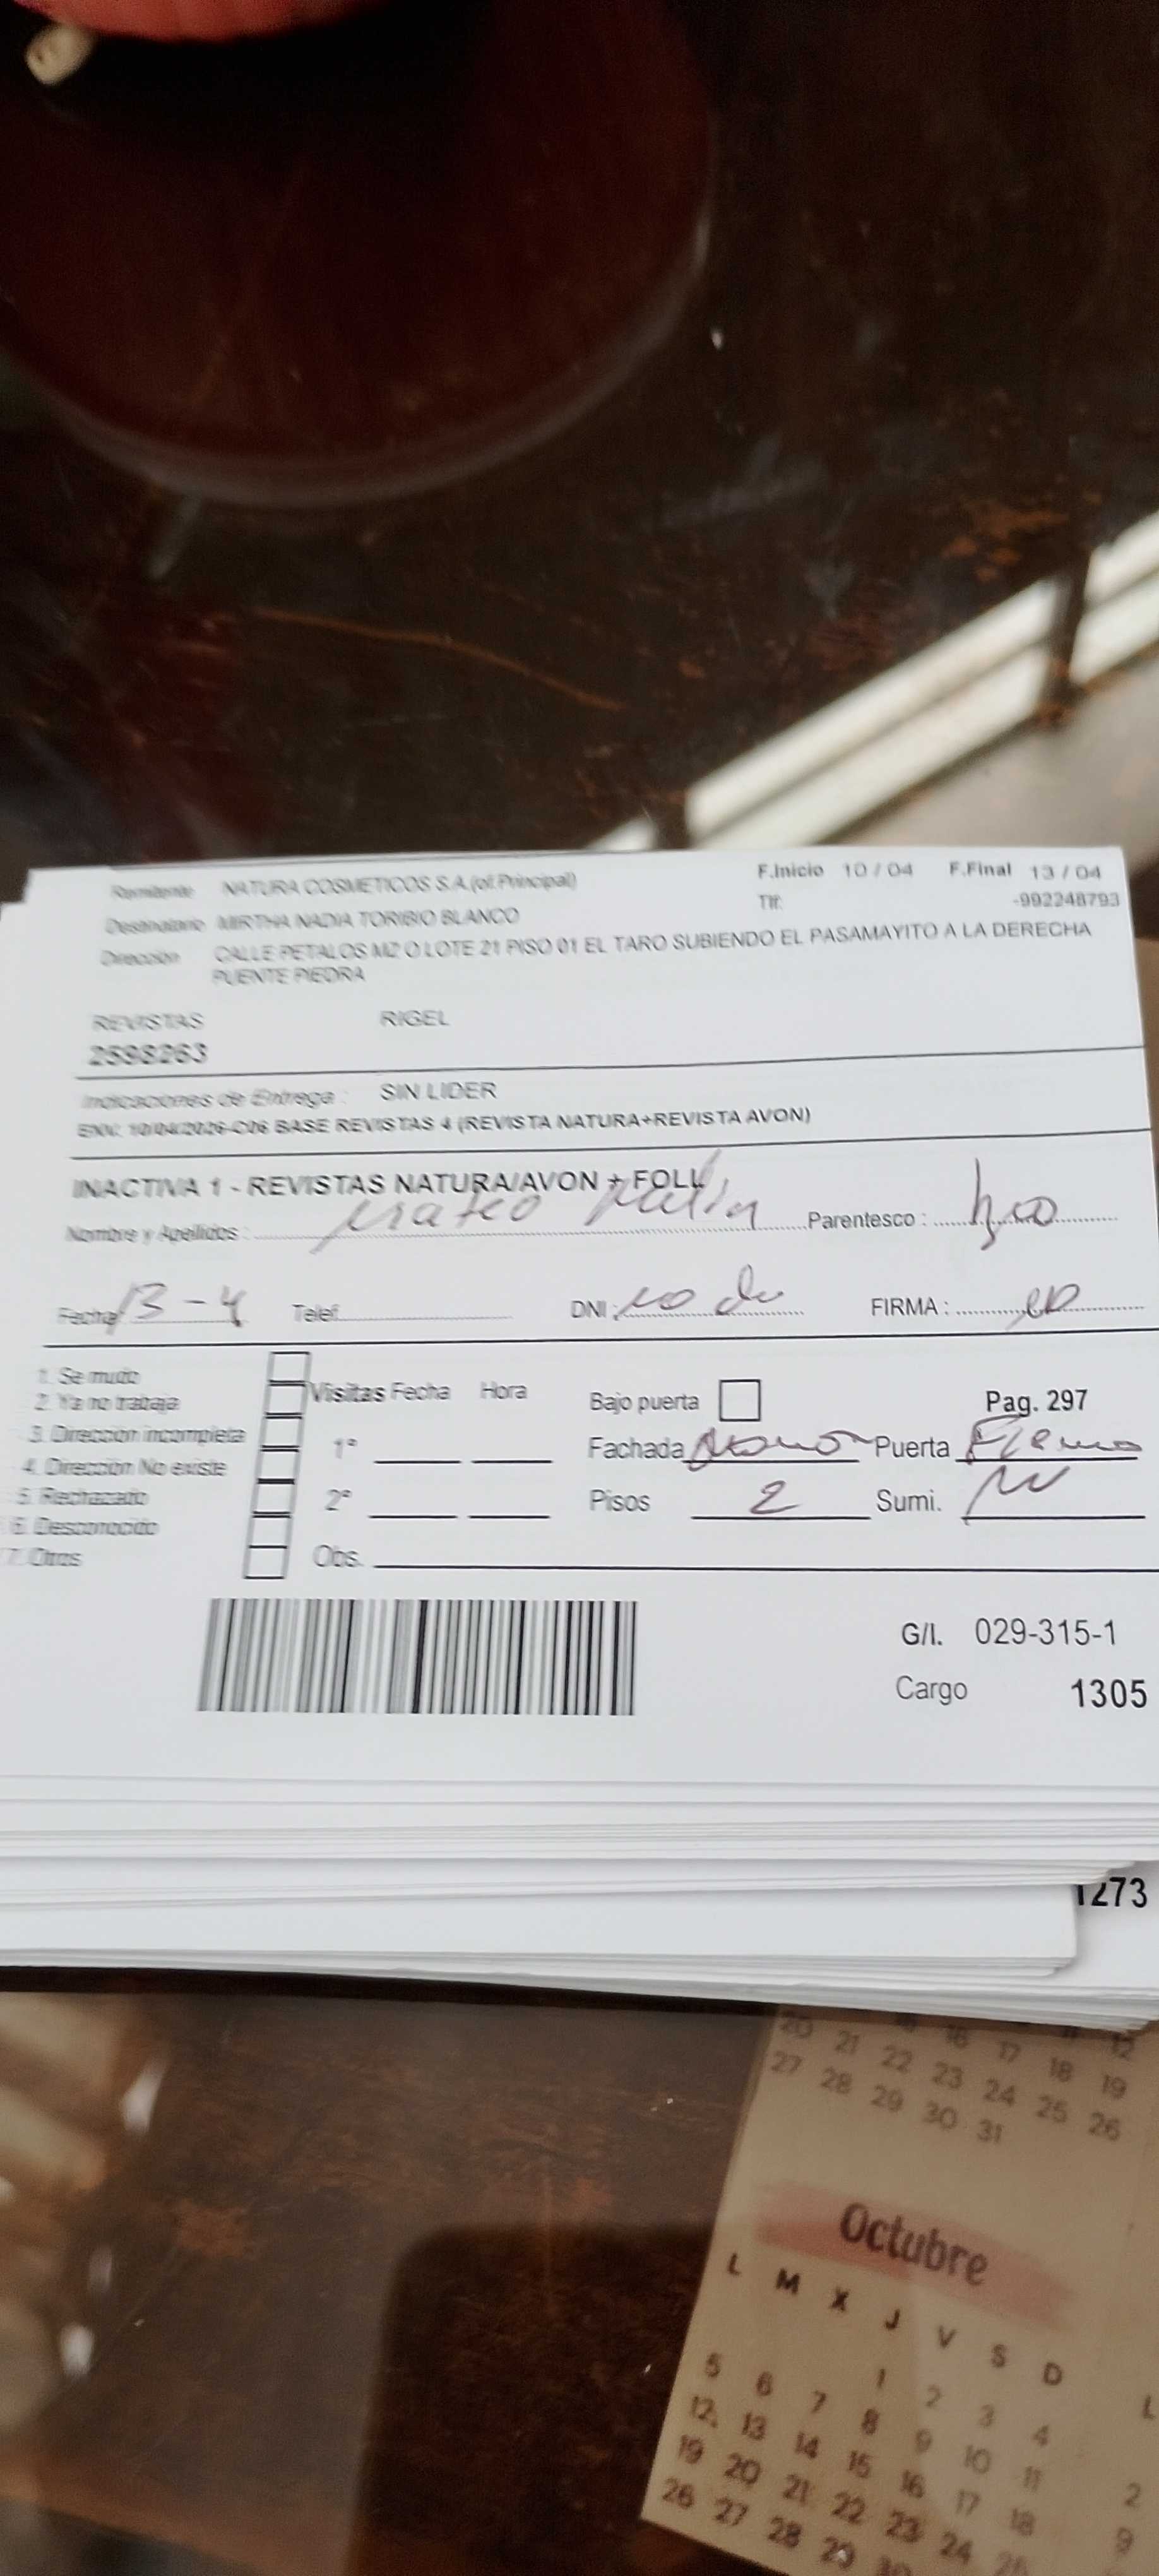 Remitente NATURA COSMETICOS S.A.(of.Principal) F.Inicio 10 / 04 F.Final 13 / 04
Destinatario MIRTHA NADIA TORIBIO BLANCO Tlf: -992248793
Dirección CALLE PETALOS MZ O LOTE 21 PISO 01 EL TARO SUBIENDO EL PASAMAYITO A LA DERECHA
PUENTE PIEDRA
REVISTAS RIGEL
2598263
Indicaciones de Entrega : SIN LIDER
ENV. 10/04/2026-C06 BASE REVISTAS 4 (REVISTA NATURA+REVISTA AVON)
INACTIVA 1 - REVISTAS NATURA/AVON + FOLL
Nombre y Apellidos : Mateo Parentesco :
Fecha 13-4 Telef. DNI : no da FIRMA :
1. Se mudo
2. Ya no trabaja
3. Dirección incompleta
4. Dirección No existe
5. Rechazado
6. Desconocido
7. Otros
Visitas Fecha Hora
1ª
2ª
Obs.
Bajo puerta Pag. 297
Fachada Puerta Fierro
Pisos 2 Sumi.
G/I. 029-315-1
Cargo 1305
1273
16 17 18 19
20 21 22 23 24 25 26
27 28 29 30 31
Octubre
L M X J V S D
1 2 3 4
5 6 7 8 9 10 11
12 13 14 15 16 17 18
19 20 21 22 23 24 25
26 27 28 29 30
L
2
9